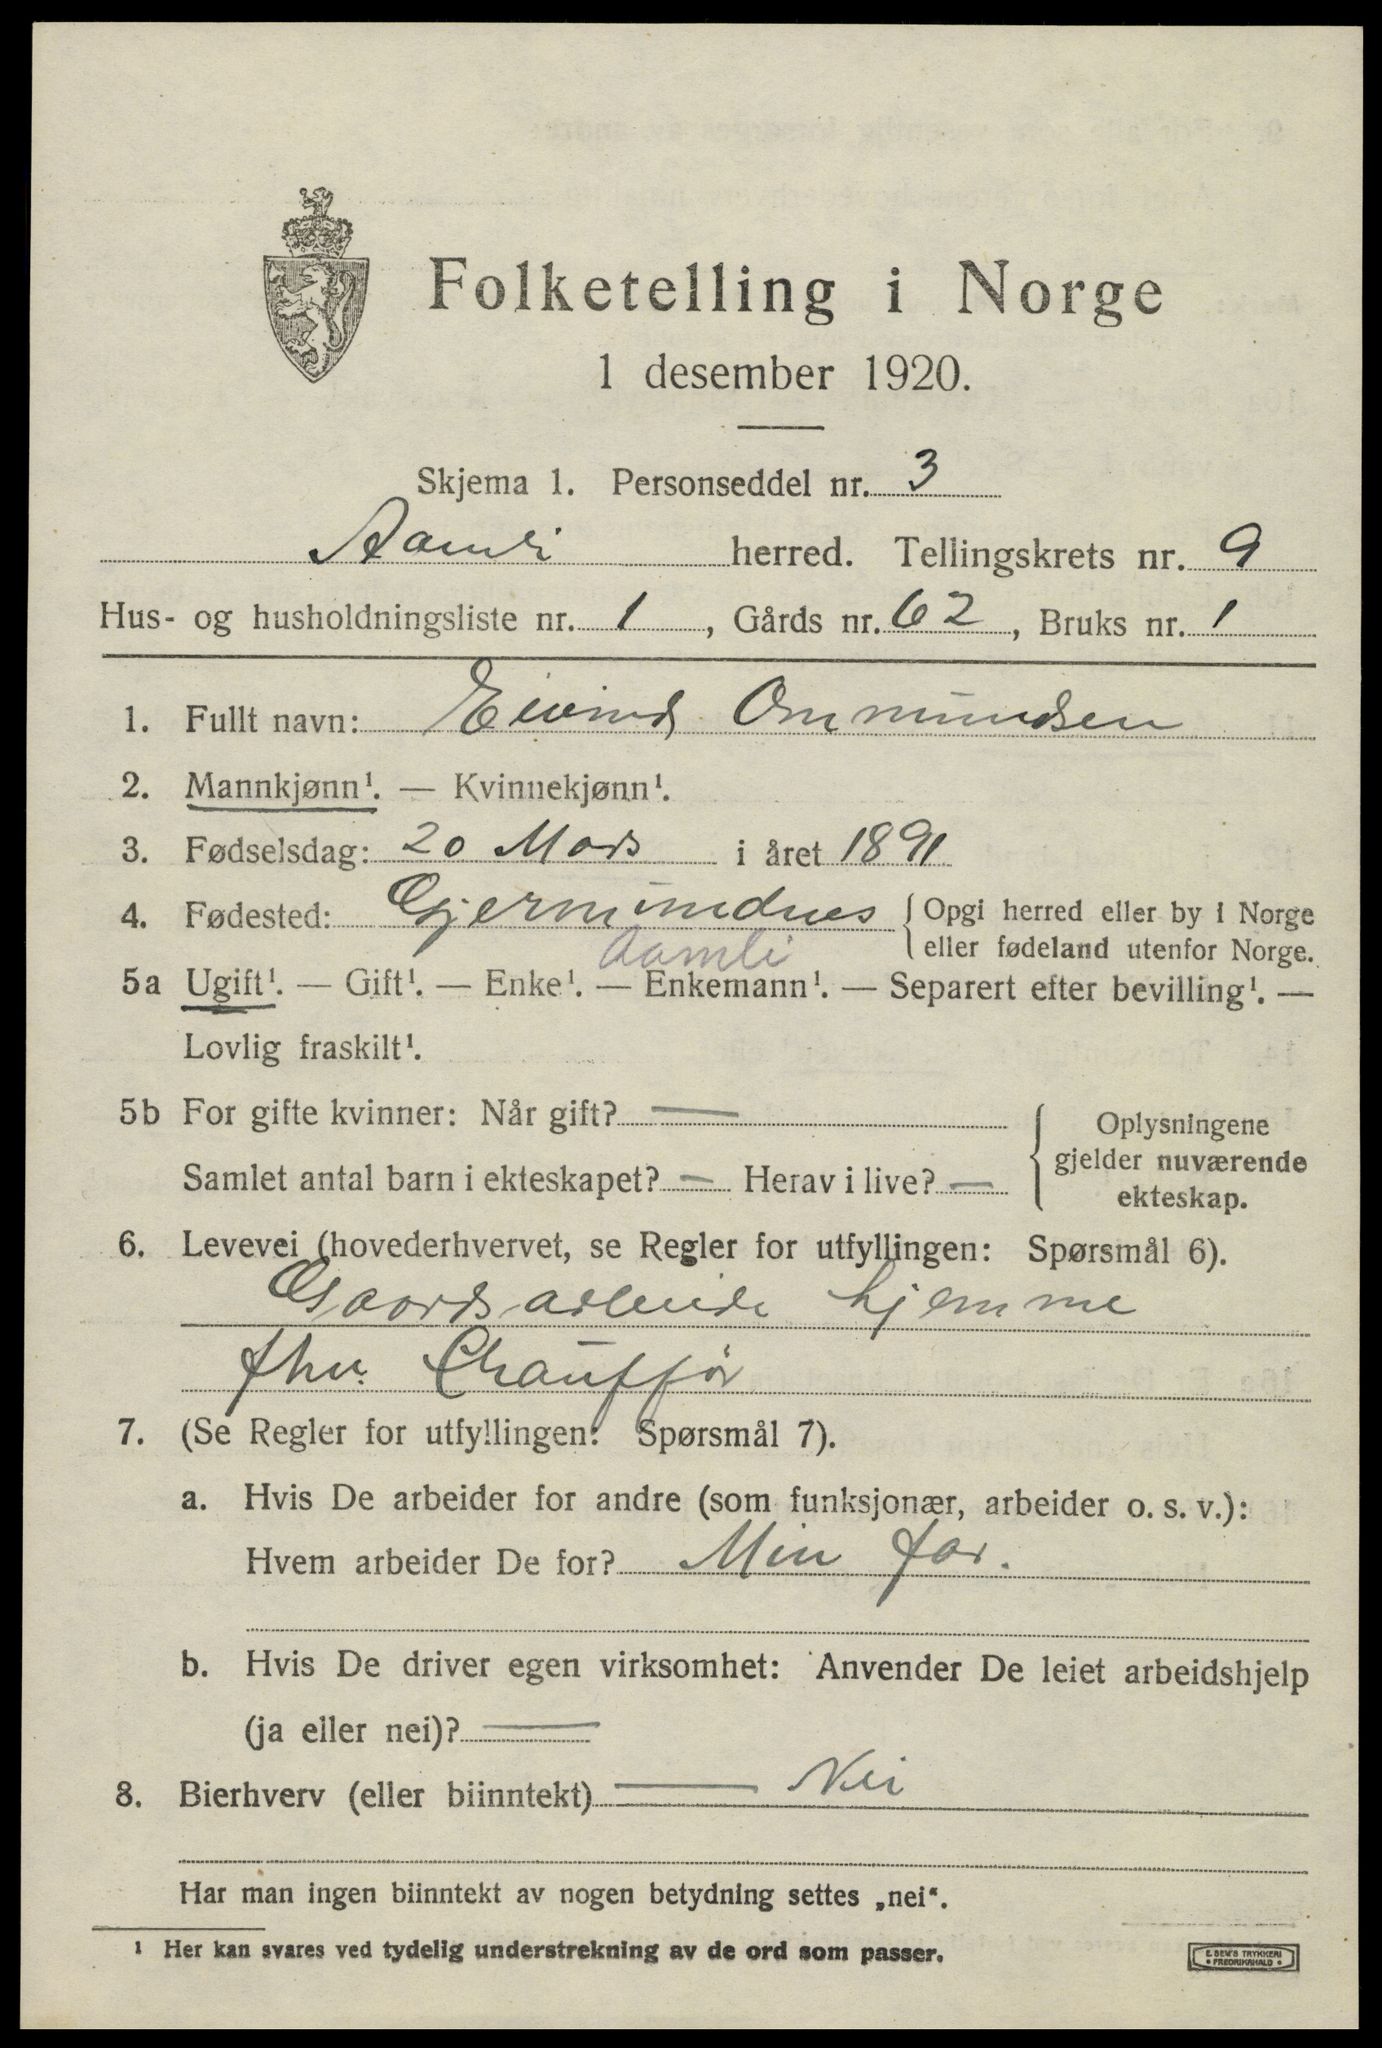 Folketelling i Norge
1 desember 1920.
Skjema 1. Personseddel nr. 3
Aamli herred. Tellingskrets nr. 9
Hus- og husholdningsliste nr. 1, Gårds nr. 62, Bruks nr. 1
1. Fullt navn: Eivind Ommundsen
2. Mannkjønn¹. — Kvinnekjønn¹.
3. Fødselsdag: 20 Mars i året 1891
4. Fødested: Gjermundnes { Opgi herred eller by i Norge
eller fødeland utenfor Norge.
Aamli
5a Ugift¹. — Gift¹. — Enke¹. — Enkemann¹. — Separert efter bevilling¹. —
Lovlig fraskilt¹.
5b For gifte kvinner: Når gift? —
Samlet antal barn i ekteskapet? — Herav i live? —
{ Oplysningene
gjelder nuværende
ekteskap.
6. Levevei (hovederhvervet, se Regler for utfyllingen: Spørsmål 6).
Gaardsarbeide hjemme
fhv. Chauffør
7. (Se Regler for utfyllingen: Spørsmål 7).
a. Hvis De arbeider for andre (som funksjonær, arbeider o. s. v.):
Hvem arbeider De for? Min far.
b. Hvis De driver egen virksomhet: Anvender De leiet arbeidshjelp
(ja eller nei)? —
8. Bierhverv (eller biinntekt) — Nei
Har man ingen biinntekt av nogen betydning settes „nei“.
¹ Her kan svares ved tydelig understrekning av de ord som passer.
E. SEM'S TRYKKERI
• FREDRIKSHALD •